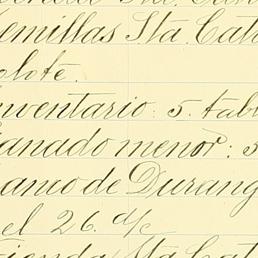 emillas Sta. Cat
olote.
nventario: 5. tabl
anado menor: 5
anco de Durang
el 26. d/c
ienda Sta Cat